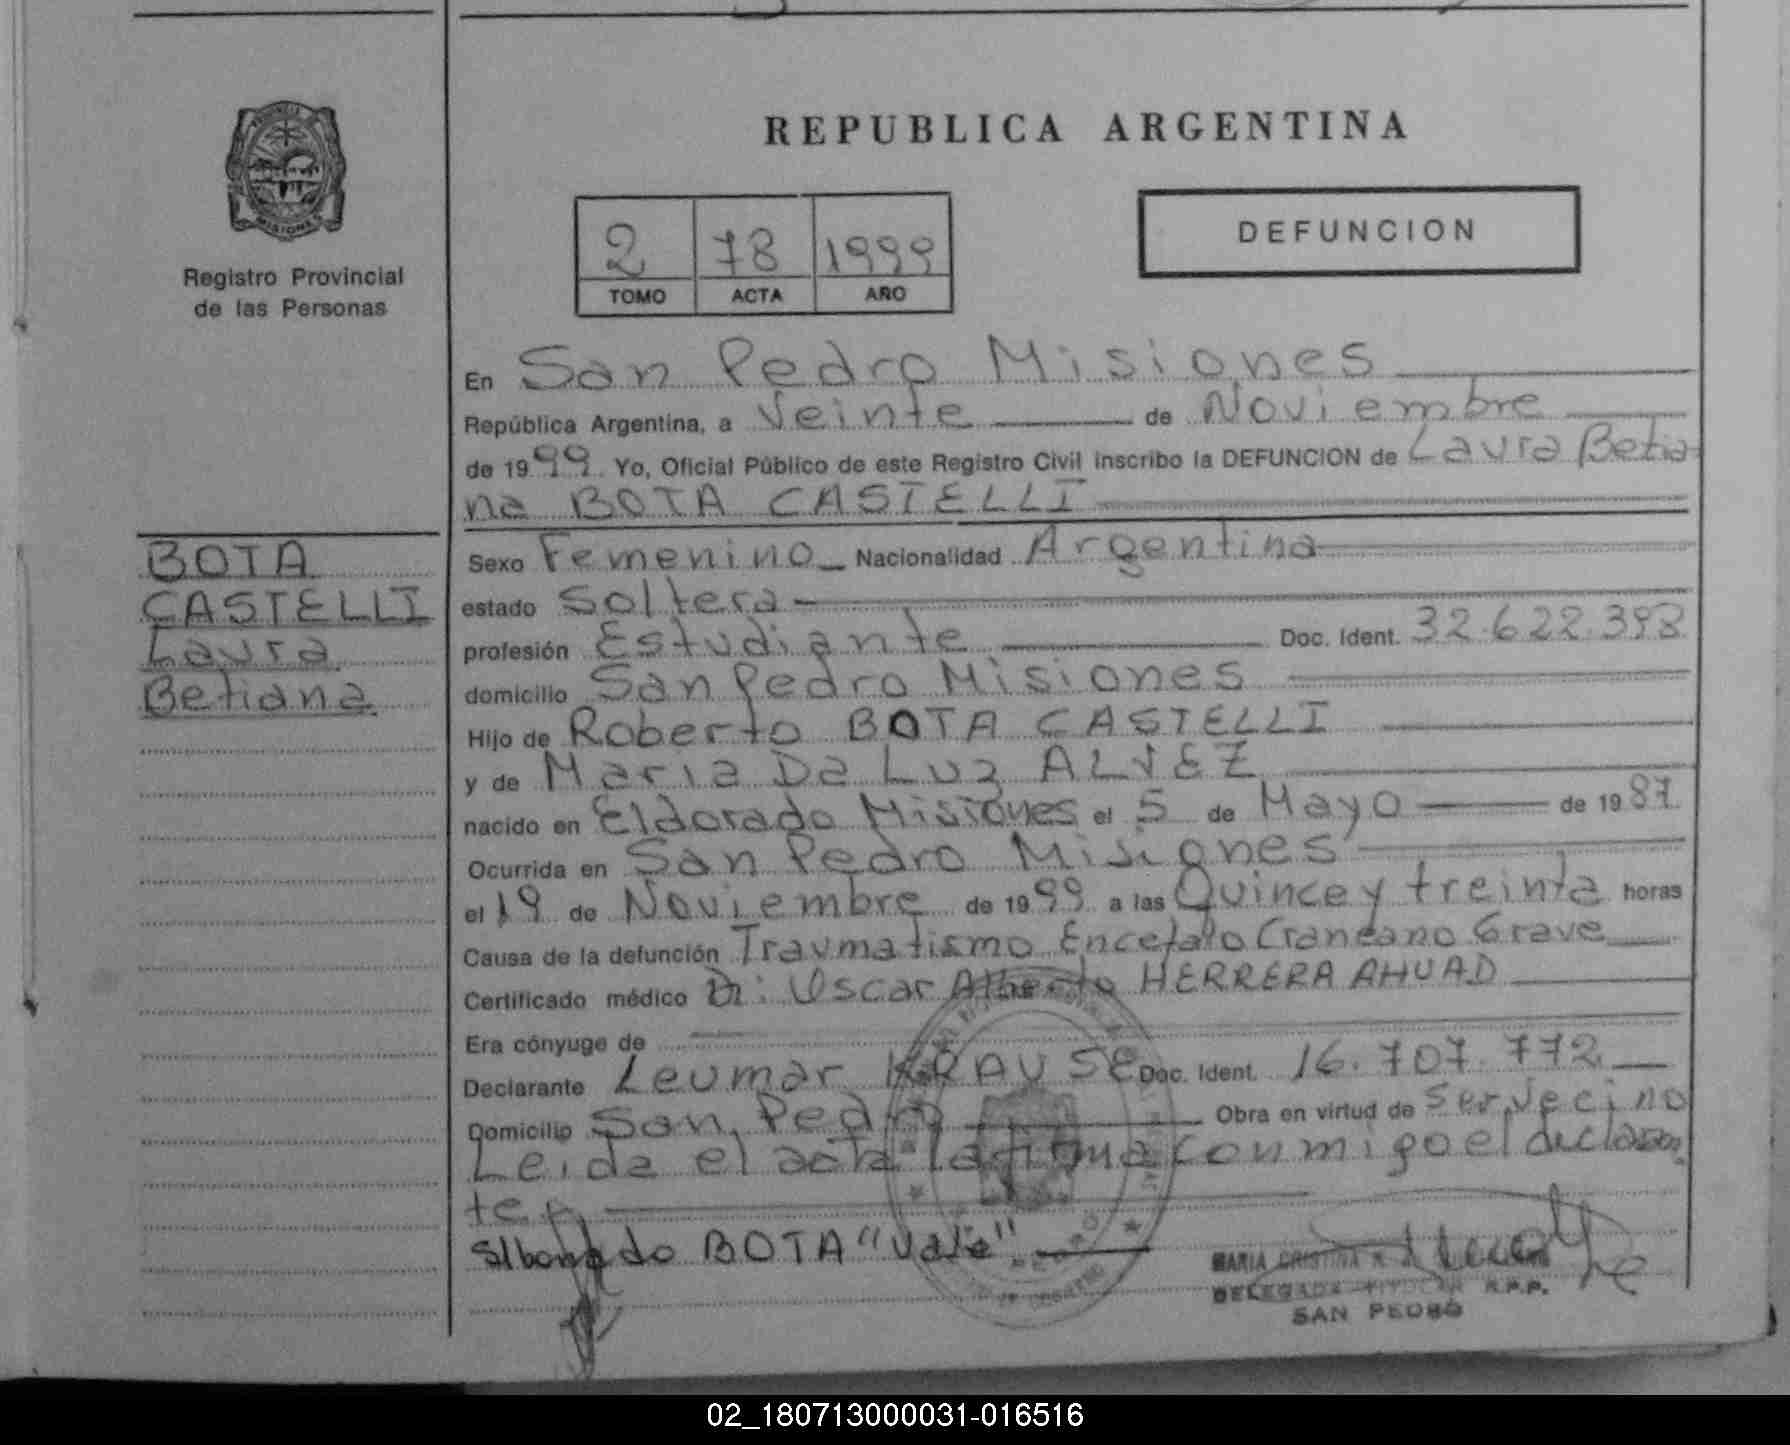 REPUBLICA ARGENTINA
PROVINCIA
MISIONES
Registro Provincial
de las Personas
2 78 1999
TOMO ACTA AÑO
DEFUNCION
En San Pedro Misiones
República Argentina, a Veinte de Noviembre
de 1999 Yo, Oficial Público de este Registro Civil inscribo la DEFUNCION de Laura Betia-
na BOTA CASTELLI
BOTA
CASTELLI
Laura
Betiana
Sexo Femenino Nacionalidad Argentina
estado Soltera
profesión Estudiante Doc. Ident. 32.622.398
domicilio San Pedro Misiones
Hijo de Roberto BOTA CASTELLI
y de Maria Da Luz ALVEZ
nacido en Eldorado Misiones el 5 de Mayo de 1987
Ocurrida en San Pedro Misiones
el 19 de Noviembre de 1999 a las Quince y treinta horas
Causa de la defunción Traumatismo Encefalo Craneano Grave
Certificado médico Dr: Oscar Alberto HERRERA AHUAD
Era cónyuge de
Declarante Leumar KRAUSE Doc. Ident. 16.707.772
Domicilio San Pedro Obra en virtud de ser vecino
Leida el acta la firma conmigo el declaran
te
S/borrado BOTA "Vale"
MARIA CRISTINA
DELEGADA TITULAR R.P.P.
SAN PEDRO
02_180713000031-016516